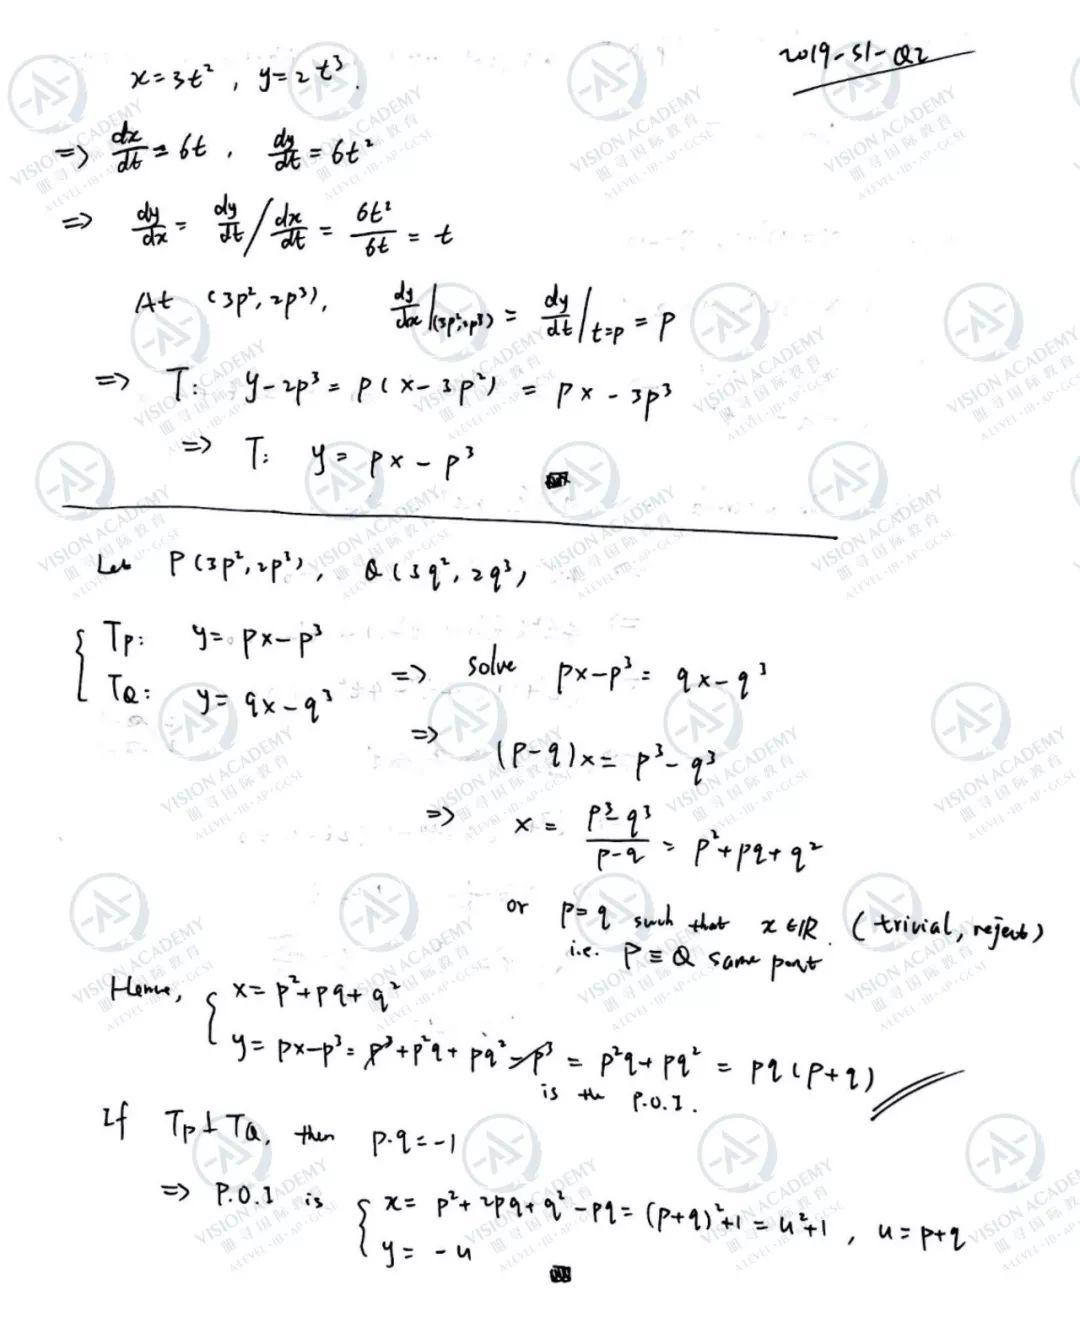 2019-S1-Q2
x=3t², y=2t³.
=> dx/dt = 6t, dy/dt = 6t²
=> dy/dx = dy/dt / dx/dt = 6t²/6t = t
At (3p², 2p³), dy/dx|(3p²,2p³) = dy/dt|t=p = p
=> T: y-2p³ = p(x-3p²) = px-3p³
=> T: y = px-p³
Let P(3p², 2p³), Q(3q², 2q³)
{ Tp: y=px-p³
TQ: y=qx-q³ => solve px-p³ = qx-q³
=> (p-q)x = p³-q³
=> x = p³-q³/p-q = p²+pq+q²
or p=q such that x∈ℝ. (trivial, reject)
i.e. P≡Q same point
Hence, { x=p²+pq+q²
y=px-p³ = p³+p²q+pq²-p³ = p²q+pq² = pq(p+q)
is the P.O.I.
If Tp⊥TQ, then p·q=-1
=> P.O.I is { x = p²+2pq+q²-pq = (p+q)²+1 = u²+1, u=p+q
y = -u
VISION ACADEMY
A-LEVEL·IB·AP·GCSE